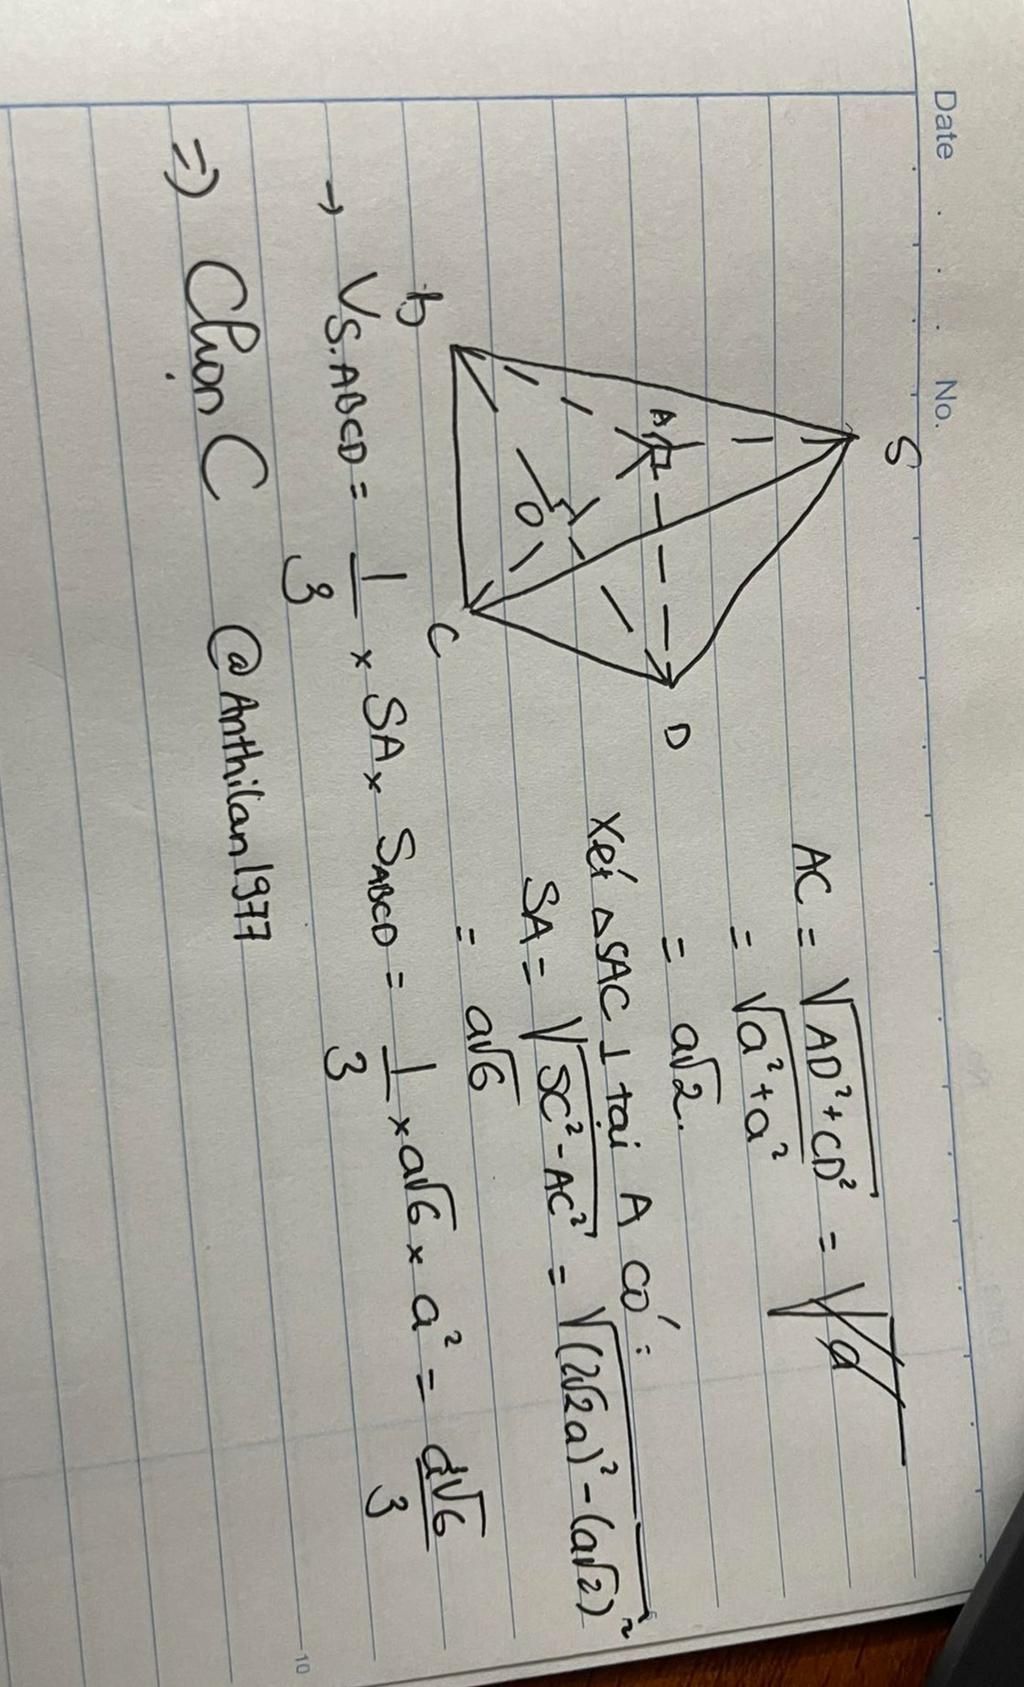 Date No.
S
A
B
C
D
O
AC = √(AD² + CD²) =
= √(a² + a²)
= a√2.
Xét ΔSAC ⊥ tại A có:
SA = √(SC² - AC²) = √((2√2a)² - (a√2)²)
= a√6
→ V S.ABCD = 1/3 × SA × SABCD = 1/3 × a√6 × a² = a√6/3
=) Chọn C @Anthilan1977
10